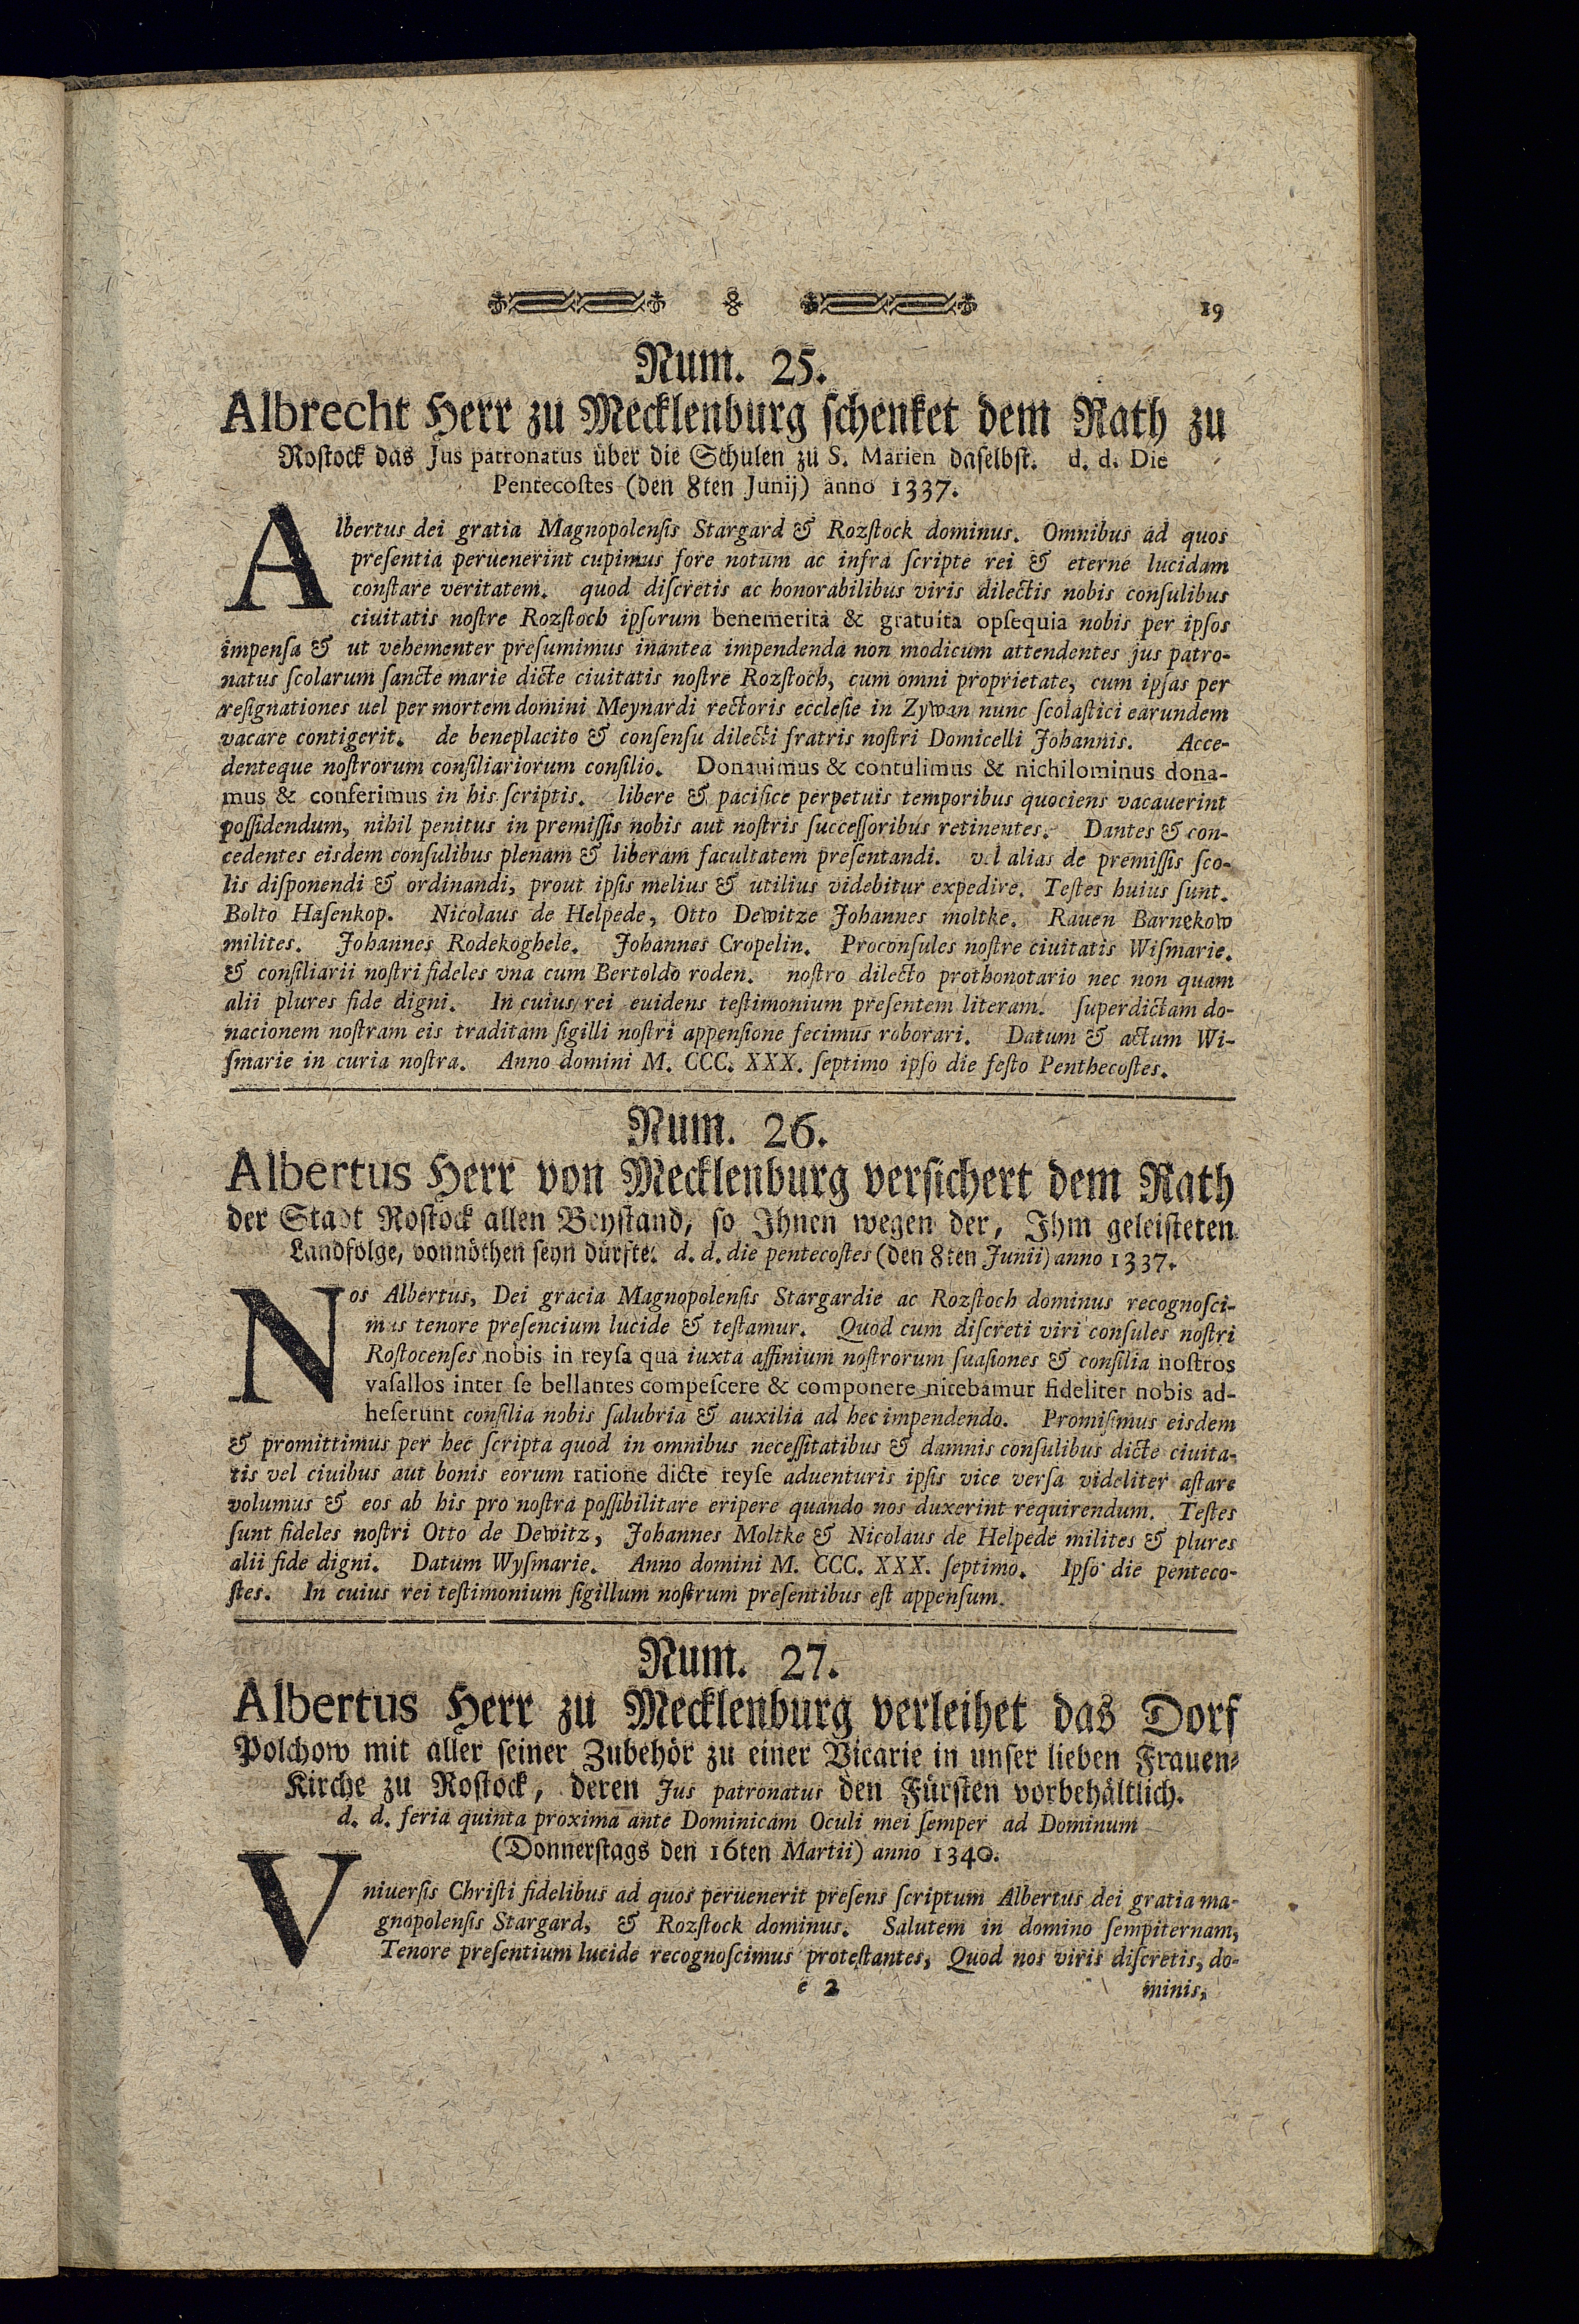 19
Num. 25.
Albrecht Herr zu Mecklenburg schenket dem Rath zu
Rostock das Jus patronatus über die Schulen zu S. Marien daselbst. d. d. Die
Pentecostes (den 8ten Junij) anno 1337.
Albertus dei gratia Magnopolensis Stargard & Rozstock dominus. Omnibus ad quos
presentia peruenerint cupimus fore notum ac infra scripte rei & eterne lucidam
constare veritatem. quod discretis ac honorabilibus viris dilectis nobis consulibus
ciuitatis nostre Rozstoch ipsorum benemerita & gratuita opsequia nobis per ipsos
impensa & ut vehementer presumimus inantea impendenda non modicum attendentes jus patro-
natus scolarum sancte marie dicte ciuitatis nostre Rozstoch, cum omni proprietate, cum ipsas per
resignationes uel per mortem domini Meynardi rectoris ecclesie in Zywan nunc scolastici earundem
vacare contigerit. de beneplacito & consensu dilecti fratris nostri Domicelli Johannis. Acce-
denteque nostrorum consiliariorum consilio. Donauimus & contulimus & nichilominus dona-
mus & conferimus in his scriptis. libere & pacifice perpetuis temporibus quociens vacauerint
possidendum, nihil penitus in premissis nobis aut nostris successoribus retinentes. Dantes & con-
cedentes eisdem consulibus plenam & liberam facultatem presentandi. vel alias de premissis sco-
lis disponendi & ordinandi, prout ipsis melius & utilius videbitur expedire. Testes huius sunt.
Bolto Hasenkop. Nicolaus de Helpede, Otto Dewitze Johannes moltke. Rauen Barnekow
milites. Johannes Rodekoghele. Johannes Cropelin. Proconsules nostre ciuitatis Wismarie.
& consiliarii nostri fideles vna cum Bertoldo roden. nostro dilecto prothonotario nec non quam
alii plures fide digni. In cuius rei euidens testimonium presentem literam. superdictam do-
nacionem nostram eis traditam sigilli nostri appensione fecimus roborari. Datum & actum Wi-
smarie in curia nostra. Anno domini M. CCC. XXX. septimo ipso die festo Penthecostes.
Num. 26.
Albertus Herr von Mecklenburg versichert dem Rath
der Stadt Rostock allen Beystand, so Ihnen wegen der, Ihm geleisteten
Landfolge, vonnöthen seyn dürfte. d. d. die pentecostes (den 8ten Junii) anno 1337.
Nos Albertus, Dei gracia Magnopolensis Stargardie ac Rozstoch dominus recognosci-
mus tenore presencium lucide & testamur. Quod cum discreti viri consules nostri
Rostocenses nobis in reysa qua iuxta affinium nostrorum suasiones & consilia nostros
vasallos inter se bellantes compescere & componere nitebamur fideliter nobis ad-
heserunt consilia nobis salubria & auxilia ad hec impendendo. Promisimus eisdem
& promittimus per hec scripta quod in omnibus necessitatibus & damnis consulibus dicte ciuita-
tis vel ciuibus aut bonis eorum ratione dicte reyse aduenturis ipsis vice versa videliter astare
volumus & eos ab his pro nostra possibilitare eripere quando nos duxerint requirendum. Testes
sunt fideles nostri Otto de Dewitz, Johannes Moltke & Nicolaus de Helpede milites & plures
alii fide digni. Datum Wysmarie. Anno domini M. CCC. XXX. septimo. Ipso die penteco-
stes. In cuius rei testimonium sigillum nostrum presentibus est appensum.
Num. 27.
Albertus Herr zu Mecklenburg verleihet das Dorf
Polchow mit aller seiner Zubehör zu einer Vicarie in unser lieben Frauen-
Kirche zu Rostock, deren Jus patronatus den Fürsten vorbehältlich.
d. d. feria quinta proxima ante Dominicam Oculi mei semper ad Dominum
(Donnerstags den 16ten Martii) anno 1340.
Vniuersis Christi fidelibus ad quos peruenerit presens scriptum Albertus dei gratia ma-
gnopolensis Stargard, & Rozstock dominus. Salutem in domino sempiternam,
Tenore presentium lucide recognoscimus protestantes, Quod nos viris discretis, do-
e 2 minis,